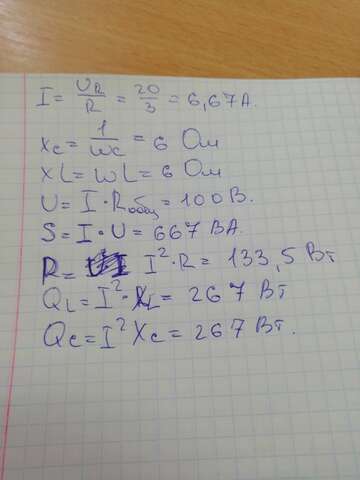 I = U_R/R = 20/3 = 6,67 А.
X_C = 1/ωC = 6 Ом
XL = ωL = 6 Ом
U = I · R_общ = 100 В.
S = I · U = 667 ВА.
R = I² · R = 133,5 Вт
Q_L = I² · X_L = 267 Вт
Q_C = I² X_C = 267 Вт.